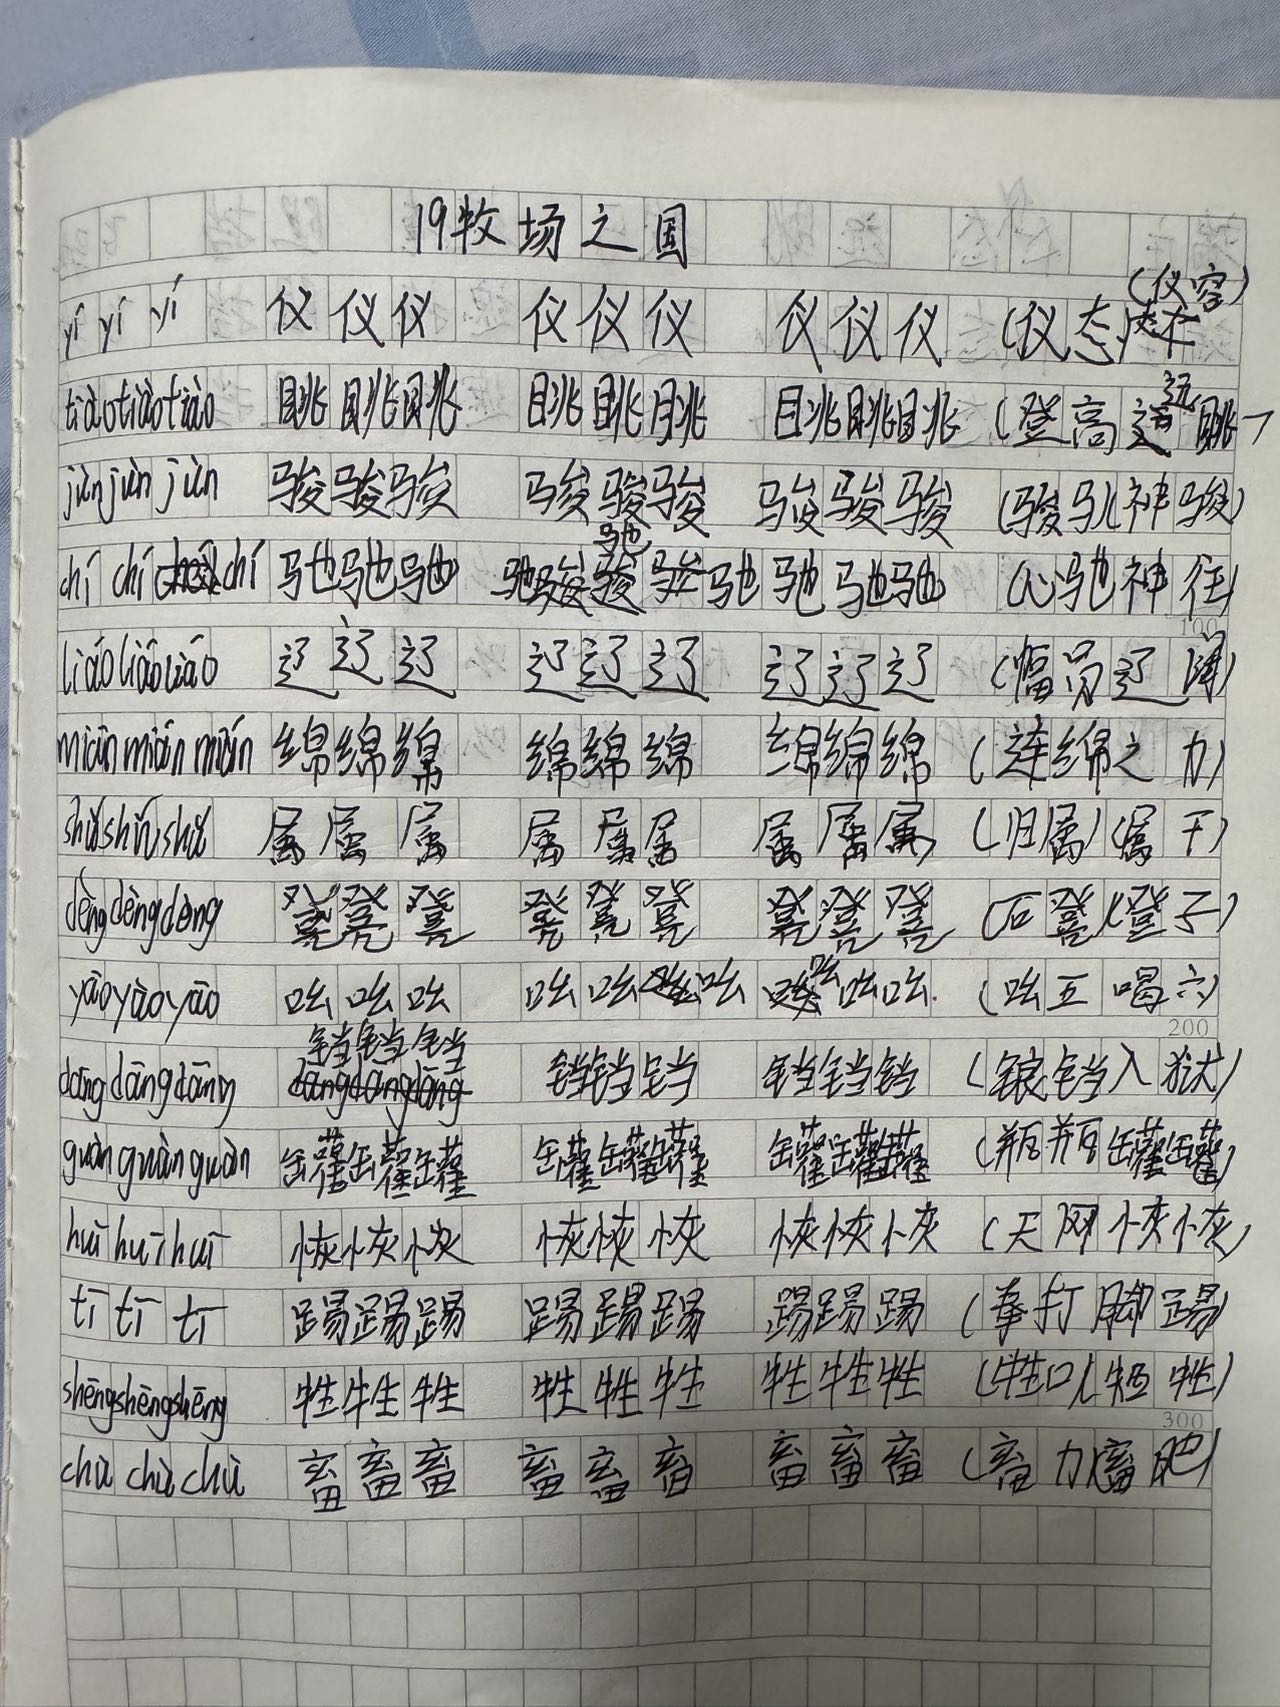 19牧场之国
yí yí yí 仪仪仪 仪仪仪 仪仪仪 (仪态)(仪容)
tiàotiàotiào 眺眺眺 眺眺眺 眺眺眺 (登高远眺)
jùn jùn jùn 骏骏骏 骏骏骏 骏骏骏 (骏马)(神骏)
chí chí chí 驰驰驰 驰驰驰 驰驰驰 (心驰神往)
liáo liáo liáo 辽辽辽 辽辽辽 辽辽辽 (幅员辽阔)
mián mián mián 绵绵绵 绵绵绵 绵绵绵 (连绵之力)
shǔ shǔ shǔ 属属属 属属属 属属属 (归属)(属于)
dèng dèng dèng 凳凳凳 凳凳凳 凳凳凳 (石凳)(凳子)
yāo yāo yāo 吆吆吆 吆吆吆 吆吆吆 (吆五喝六)
dāng dāng dāng 铛铛铛 铛铛铛 铛铛铛 (锒铛入狱)
guàn guàn guàn 罐罐罐 罐罐罐 罐罐罐 (瓶瓶罐罐)
huī huī huī 恢恢恢 恢恢恢 恢恢恢 (天网恢恢)
tī tī tī 踢踢踢 踢踢踢 踢踢踢 (拳打脚踢)
shēngshēngshēng 牲牲牲 牲牲牲 牲牲牲 (牲口)(牺牲)
chù chù chù 畜畜畜 畜畜畜 畜畜畜 (畜力)(畜肥)